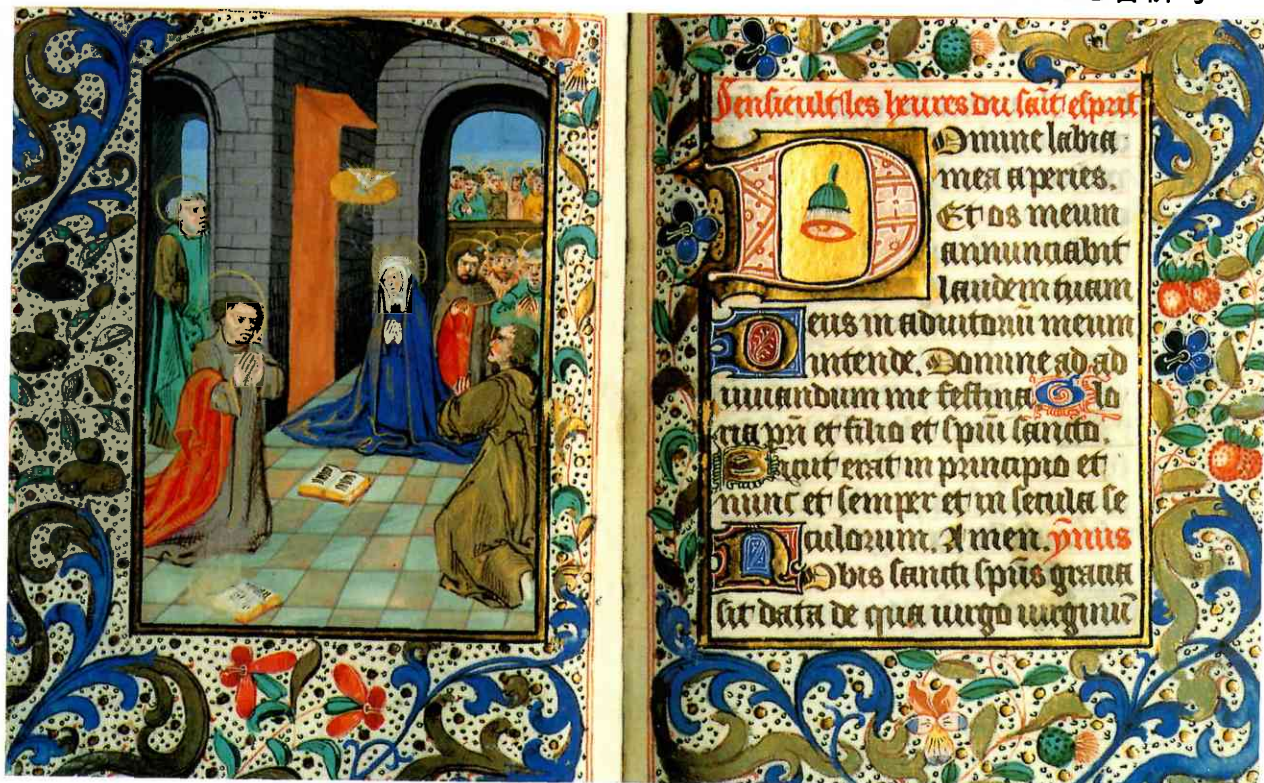 Senseiult les heures du sait esprit
Domine labia
mea aperies.
Et os meum
annunciabit
laudem tuam
Deus in adiutoriū meum
intende. Domine ad ad
iuuandum me festina Glo
ria pr̄i et filio et spiūi sancto.
Sicut erat in principio et
nunc et semper et in secula se
culorum. Amen. ȳmis
Nobis sancti spūs gracia
sit data de qua uirgo uirginū